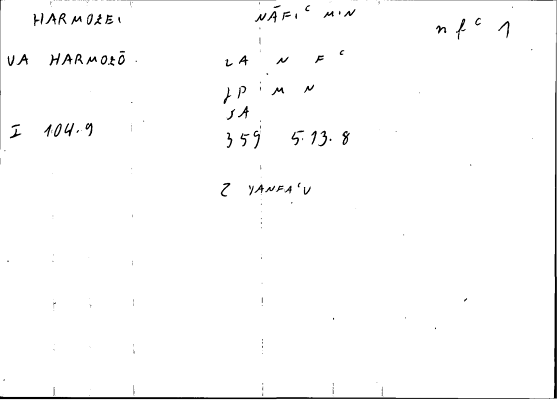 HARMOZEI NĀFIᶜ MIN n f ᶜ 1
VA HARMOZŌ ZA N F ᶜ
JP M N
SA
I 104.9 359 5.13.8
2 YANFAᶜU